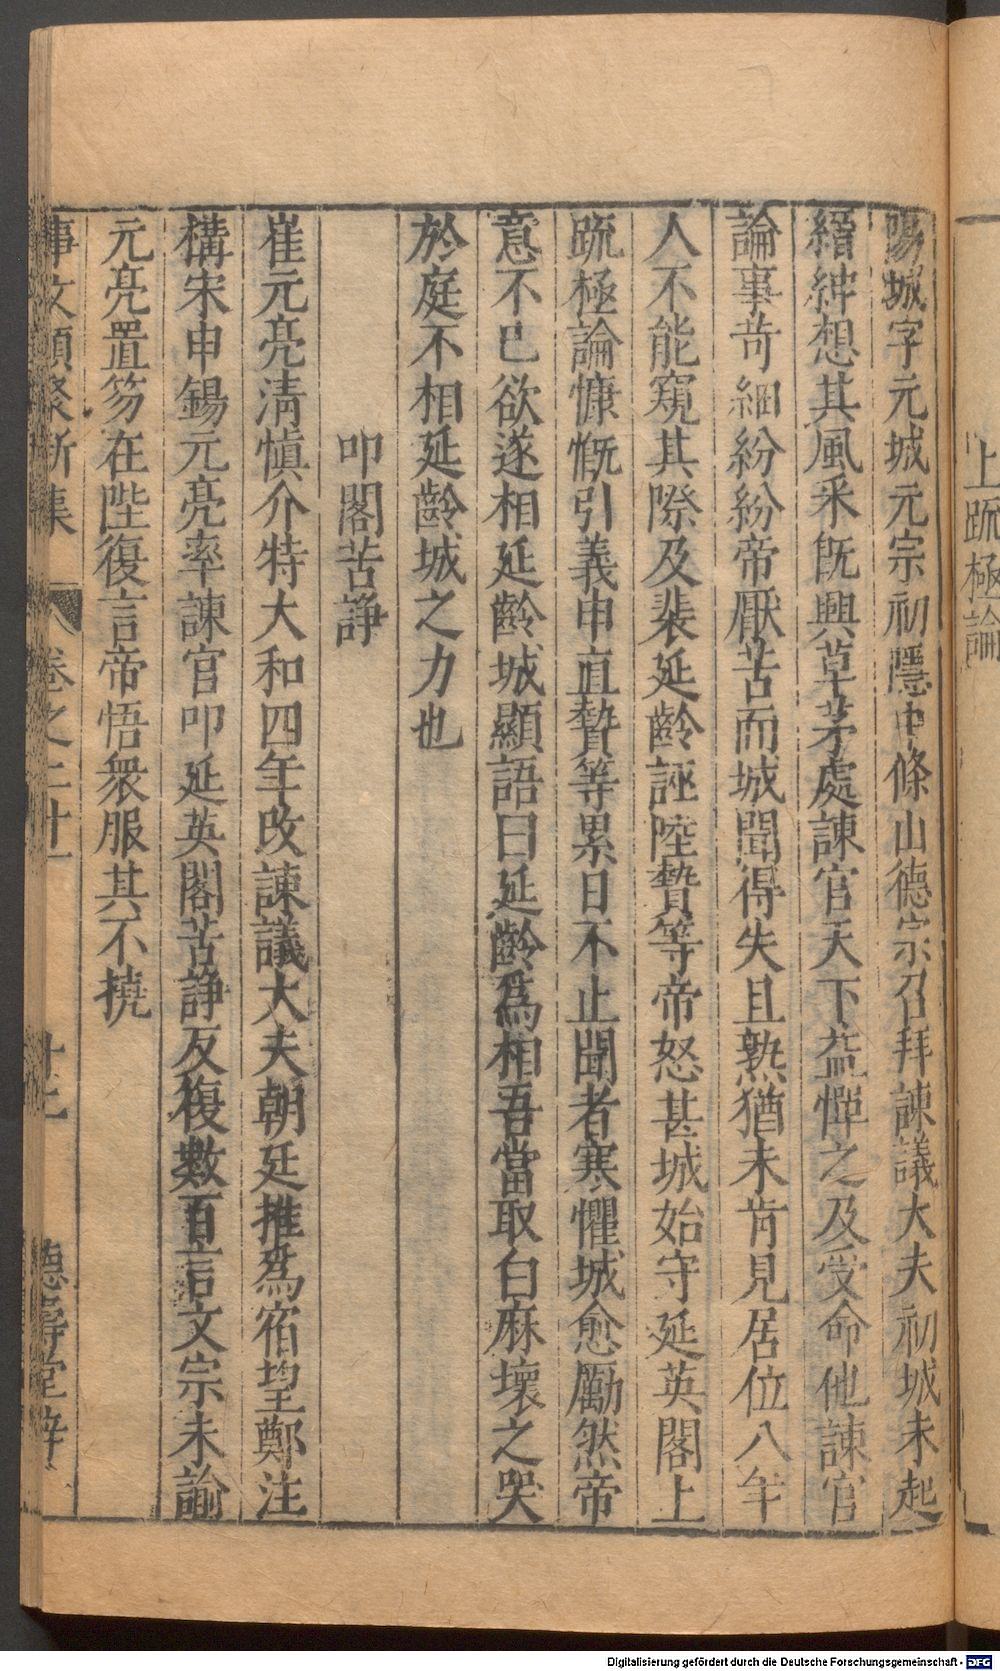 上䟽極論
陽城字元城元宗初隱中條山德宗召拜諫議大夫初城未起
縉紳想其風釆旣興草茅處諫官天下益憚之及受命他諫官
論事苛細紛紛帝厭苦而城聞得失且熟猶未肯見居位八年
人不能窺其際及裴延齡誣陸贄等帝怒甚城始守延英閣上
䟽極論慷慨引義申直贄等累日不止聞者寒懼城愈勵然帝
意不已欲遂相延齡城顯語曰延齡爲相吾當取白麻壞之哭
於庭不相延齡城之力也
叩閣苦諍
崔元亮淸愼介特大和四年改諫議大夫朝廷推爲宿望鄭注
構宋申錫元亮率諫官叩延英閣苦諍反復數百言文宗未諭
元亮置笏在陛復言帝悟衆服其不撓
事文類聚新集 卷之二十一 十七 德壽堂梓
Digitalisierung gefördert durch die Deutsche Forschungsgemeinschaft - DFG